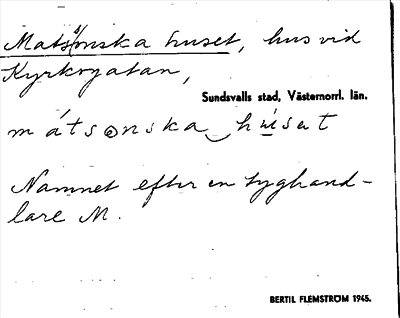 Matsonska huset, hus vid
Kyrkogatan,
Sundsvalls stad, Västernorrl. län.
mátsonska húset
Namnet efter en tyghand-
lare M.
BERTIL FLEMSTRÖM 1945.